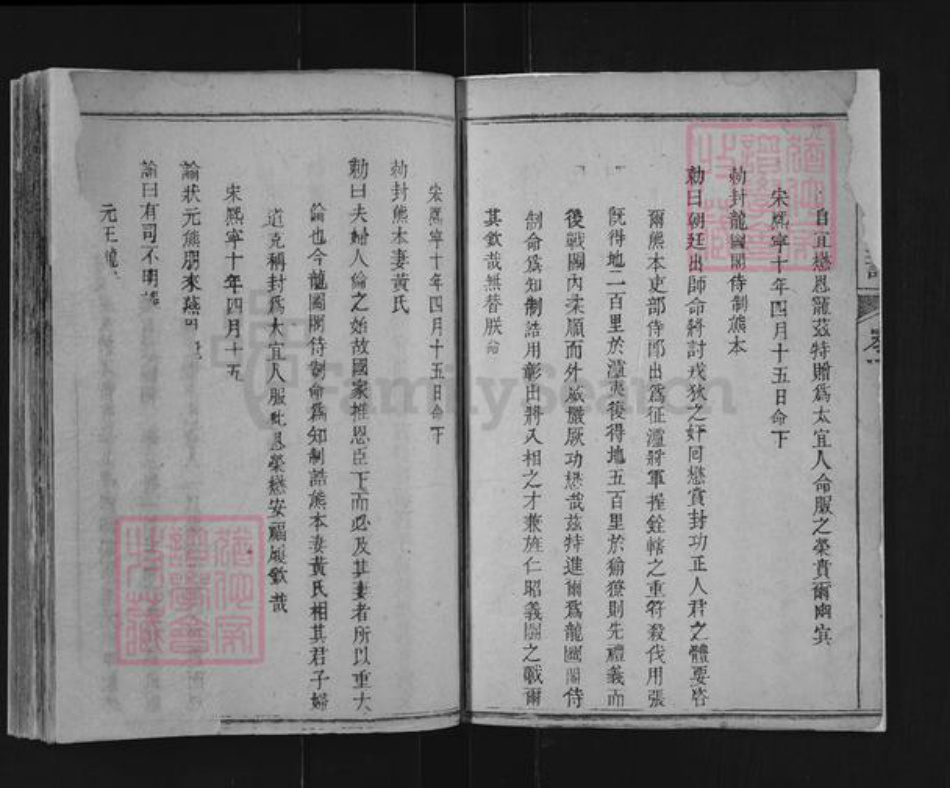 自宜懋恩寵茲特贈爲太宜人命服之榮賁爾幽冥
宋熙寧十年四月十五日命下
勅封龍圖閣侍制熊本
勅曰朝廷出師命將討戎狄之奸囘懋賞封功正人君之體要咨
爾熊本吏部侍郎出爲征瀘將軍握銓轄之重符殺伐用張
旣得地二百里於瀘夷後得地五百里於獠則先禮義而
後戰鬪內柔順而外威嚴厥功懋哉茲特進爾爲龍圖閣侍
制命爲知制誥用彰出將入相之才兼旌仁昭義之戰爾
其欽哉無替朕命
宋熙寧十年四月十五日命下
勅封熊本妻黃氏
勅曰夫婦人倫之始故國家推恩臣下而必及其妻者所以重大
倫也今龍圖閣侍制命爲知制誥熊本妻黃氏相其君子婦
道克稱封爲大宜人服此恩榮懋安福履欽哉
宋熙寧十年四月十五
諭狀元熊朋來燕
諭曰有司不明
元王
FamilySearch